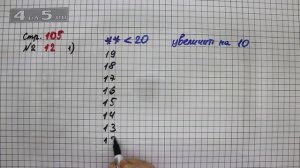 4 5
Стр. 105
№ 12 1)
** < 20 увеличить на 10
19
18
17
16
15
14
13